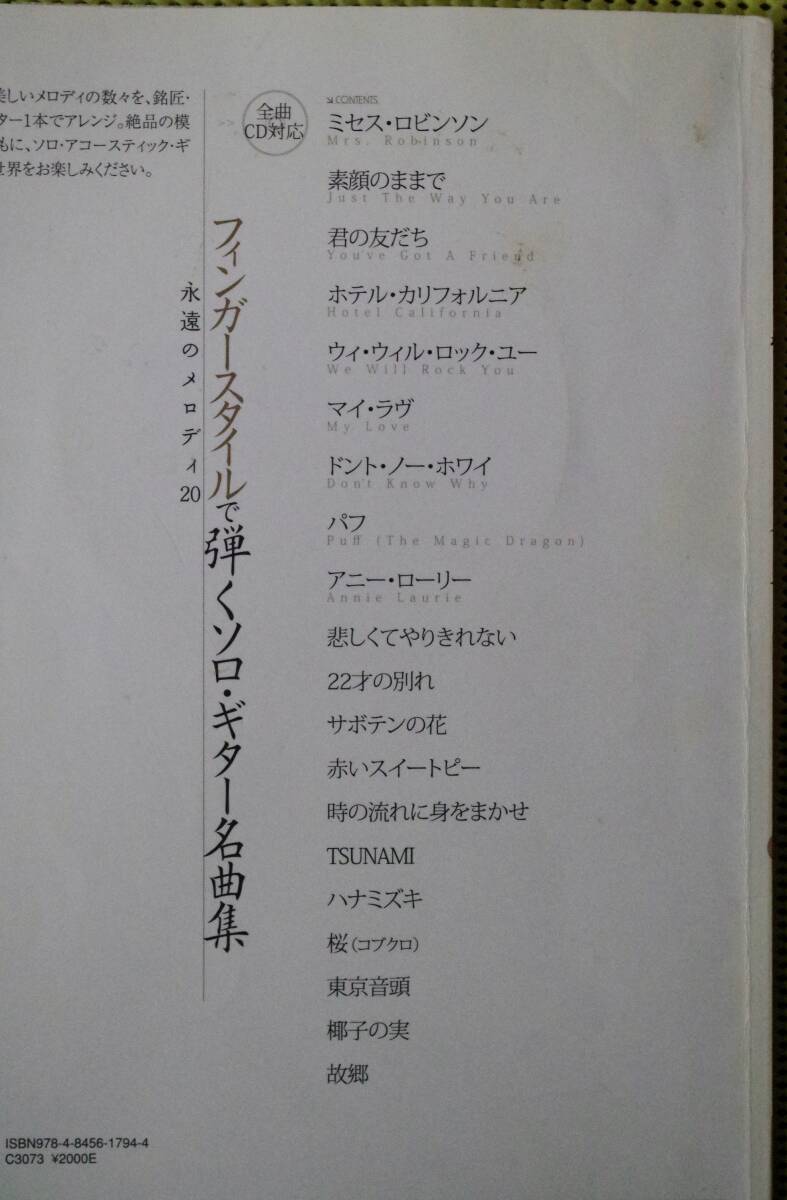 美しいメロディの数々を、銘匠・
ター1本でアレンジ。絶品の模
もに、ソロ・アコースティック・ギ
世界をお楽しみください。
>> 全曲
CD対応
フィンガースタイルで弾くソロ・ギター名曲集
永遠のメロディ20
CONTENTS
ミセス・ロビンソン
Mrs. Robinson
素顔のままで
Just The Way You Are
君の友だち
You've Got A Friend
ホテル・カリフォルニア
Hotel California
ウィ・ウィル・ロック・ユー
We Will Rock You
マイ・ラヴ
My Love
ドント・ノー・ホワイ
Don't Know Why
パフ
Puff (The Magic Dragon)
アニー・ローリー
Annie Laurie
悲しくてやりきれない
22才の別れ
サボテンの花
赤いスイートピー
時の流れに身をまかせ
TSUNAMI
ハナミズキ
桜（コブクロ）
東京音頭
椰子の実
故郷
ISBN978-4-8456-1794-4
C3073 ¥2000E